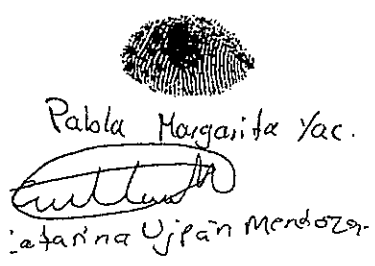 Pabla Margarita Yac.
Catarina Ujpán Mendoza